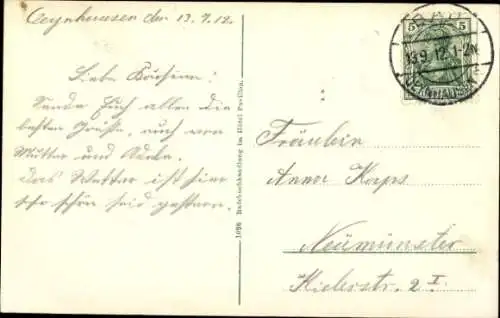 Oeynhausen den 13.9.12.
Liebe Cousine!
Sende Euch allen die
besten Grüße, auch von
Mutter und
das Wetter ist hier
sehr schön seid gestern.
1098 Badebuchhandlung im Hôtel Pavillon.
5 5
BAD
13.9.12.1-2N
OEYNHAUSEN
Fräulein
Anna Kaps
Neumünster
Kielerstr. 2 I.